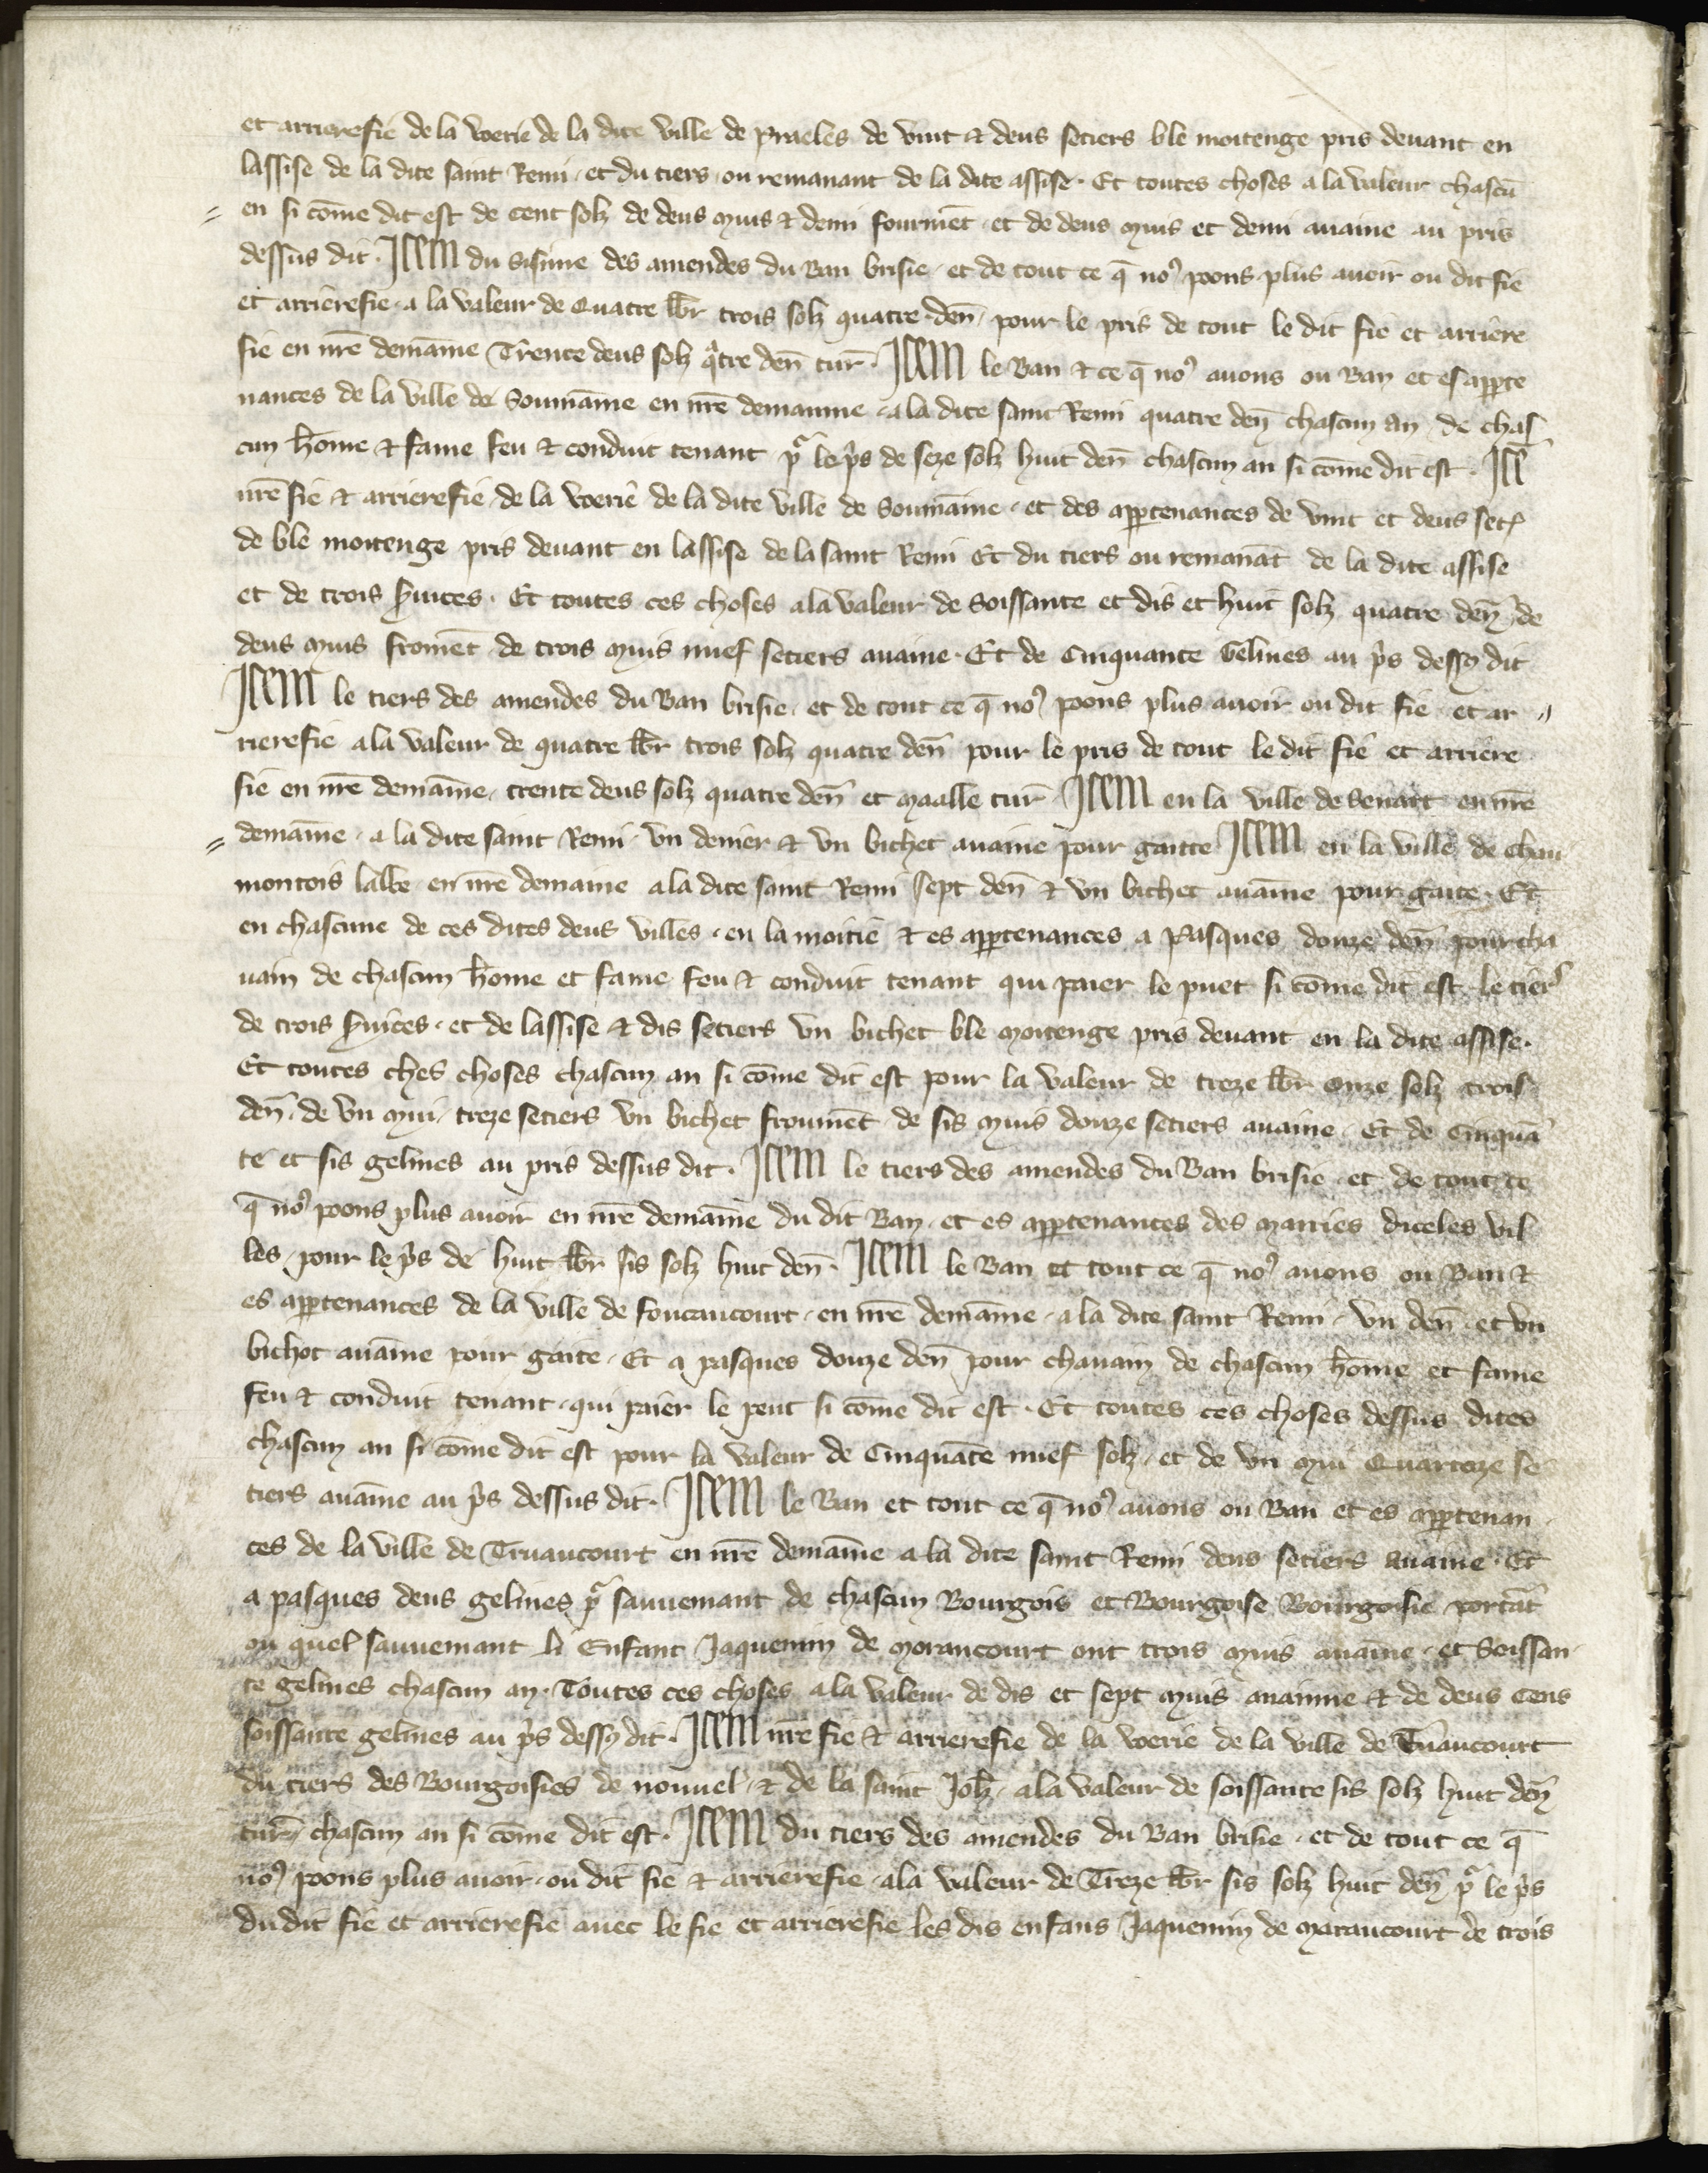 et arrierefie de la voerie de la dite ville de Praeles de vint & deus setiers ble moitenge pris deuant en
lassise de la dite saint Remi · et du tiers · ou remanant de la dite assise · Et toutes choses a la valeur chascū
en si cōme dit est de cent solz de deus muis & demi fourmēt · et de deus muis et demi auaine au pris
dessus dit · Item du sisime des amendes du Ban brisie · et de tout ce q̄ noꝰ poons plus auoir ou dit fie
et arrierefie · a la valeur de Quatre lb̄r trois solz quatre den̄ · pour le pris de tout le dit fie et arriere
fie en nr̄e demāine Trente deus solz qᵃtre den̄ tur̄ · Item le Ban & ce q̄ noꝰ auons ou Ban et es apꝑte
nances de la ville de Soumāine en nr̄e demainne · a la dite saint Remi quatre den̄ chascun an · de chas
cun hōme & fame feu & conduit tenant pᵒ le pͥs de seze solz huit den̄ chascun an si cōme dit est · Itē
nr̄e fie & arrierefie de la voerie de la dite ville de Soumāine · et des apꝑtenances de vint et deus set̄
de ble moitenge pris deuant en lassise de la saint Remi Et du tiers ou remanāt de la dite assise
et de trois ẜuices · Et toutes ces choses a la valeur de Soissante et dis et huit solz quatre den̄ de
deus muis fromēt de trois muis nuef setiers auaine · Et de Cinquante Gelines au pͥs dessꝰ dit
Item le tiers des amendes du Ban brisie · et de tout ce q̄ noꝰ poons plus auoir ou dit fie et ar
rierefie a la valeur de quatre lb̄r trois solz quatre den̄ pour le pris de tout le dit fie et arriere
fie en nr̄e demāine · trente deus solz quatre den̄ et maalle tur̄ · Item en la ville de Senart en nr̄e
demāine · a la dite saint Remi · vn denier & vn bichet auaine pour gaitte Item en la ville de Chau
montois labbe en nr̄e demaine a la dite saint Remi sept den̄ & vn bichet auāine pour gaite · Et
en chascune de ces dites deus villes · en la moitie & es apꝑtenances a Pasques douze den̄ pour cha
uain de chascun hōme et fame feu & conduit tenant qui paier le puet si cōme dit est · le tiers
de trois ẜuices · et de lassise & dis setiers vn bichet ble moitenge pris deuant en la dite assise ·
Et toutes ches choses chascun an si cōme dit est pour la valeur de treze lb̄r onze solz trois
den̄ · de vn mui · treze setiers vn bichet froumēt de sis muis douze setiers auaine · Et de Cinquā
te et sis gelines au pris dessus dit · Item le tiers des amendes du Ban brisie · et de tout ce
q̄ noꝰ poons plus auoir en nr̄e demāine du dit Ban · et es apꝑtenances des mairies diceles vil
les · pour le pͥs de huit lb̄r sis solz huit den̄ · Item le Ban et tout ce q̄ noꝰ auons ou Ban &
es apꝑtenances de la ville de foucaucourt · en nr̄e demāine · a la dite saint Remi · vn den̄ · et vn
bichot auāine pour gaite · Et a pasques douze den̄ pour chauain de chascun hōme et fame
feu & conduit tenant · qui paier le peut si cōme dit est · Et toutes ces choses dessus dites
chascun an si cōme dit est pour la valeur de Cinquāte nuef solz · et de vn mui Quartoze se
tiers auāine au pͥs dessus dit · Item le Ban et tout ce q̄ noꝰ auons ou Ban et es apꝑtenan
ces de la ville de Triaucourt en nr̄e demāine a la dite saint Remi deus setiers auaine · Et
a pasques deus gelines pᵒ sauuemant de chascun Bourgois et Bourgoise Bourgoisie portāt
ou quel sauuemant li Enfant Jaquemin de Morancourt ont trois muis auāine · et Soissan
te gelines chascun an · Toutes ces choses a la valeur de dis et sept muis auainne & de deus Cens
soissante gelines au pͥs dessꝰ dit · Item nr̄e fie & arrierefie de la voerie de la ville de Triaucourt
du tiers des Bourgoisies de nouuel · & de la saint Joh̄ · a la valeur de soissante sis solz huit den̄
tur̄ · chascun an si cōme dit est · Item du tiers des amendes du Ban brisie · et de tout ce q̄
noꝰ poons plus auoir · ou dit fie & arrierefie · a la valeur de Treze lb̄r sis solz huit den̄ pᵒ le pͥs
du dit fie et arrierefie auec le fie et arrierefie les dis enfans Jaquemin de Maraucourt de trois